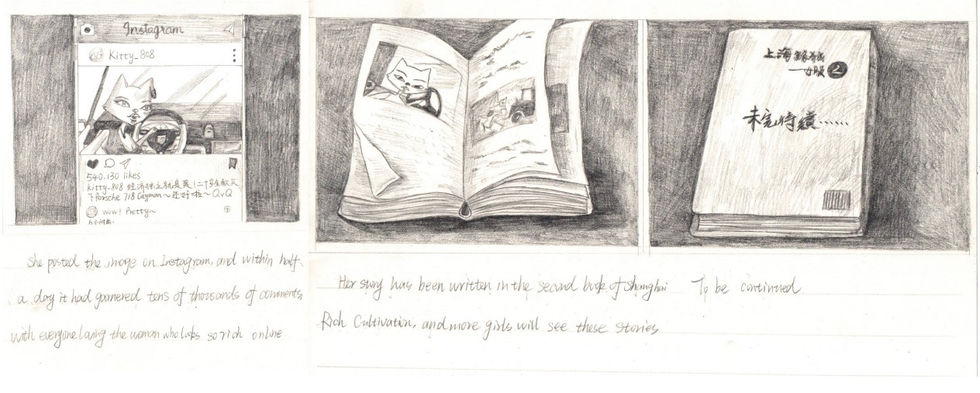 Instagram
Kitty_808
540,130 likes
Kitty-808 经济独立就是我二十
了Porsche 718 Cayman～还好啦～QvQ
wow! Pretty～
She posted the image on Instagram, and within half
a day it had garnered tens of thousands of comments,
with everyone loving the woman who looks so rich online
Her story has been written in the second book of Shanghai
Rich Cultivation, and more girls will see these stories
上海
2
未完待續……
To be continued